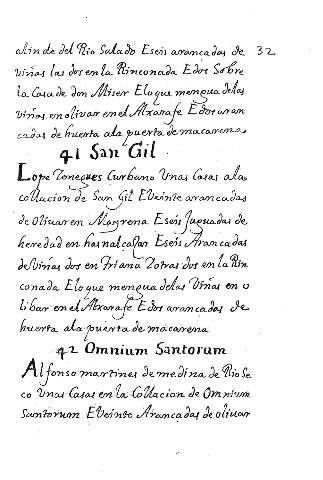 alinde del Rio Salado Eseis arancadas de 32
viñas las dos en la Rinconada Edos Sobre
la Casa de don Miser Elo que mengua delas
viñas en olivar en el Alxarafe Edos aran
cadas de huerta ala puerta de macarena
41 San Gil
Lope Zonegues Curbano Unas Casas ala
collacion de San Gil E Veinte arancadas
de olivar en Magrena Eseis Juguadas de
heredad en haznalcaçar Eseis Arancadas
de Viñas dos en triana Iotras dos en la Rin
conada Elo que mengua delas Viñas en o
libar en el Alxarafe Edos arancadas de
huerta ala puerta de macarena
42 Omnium Santorum
Alfonso martines de medina de Rio Se
co Unas Casas en la Collacion de Omnium
Santorum E Veinte Arancadas de olivar